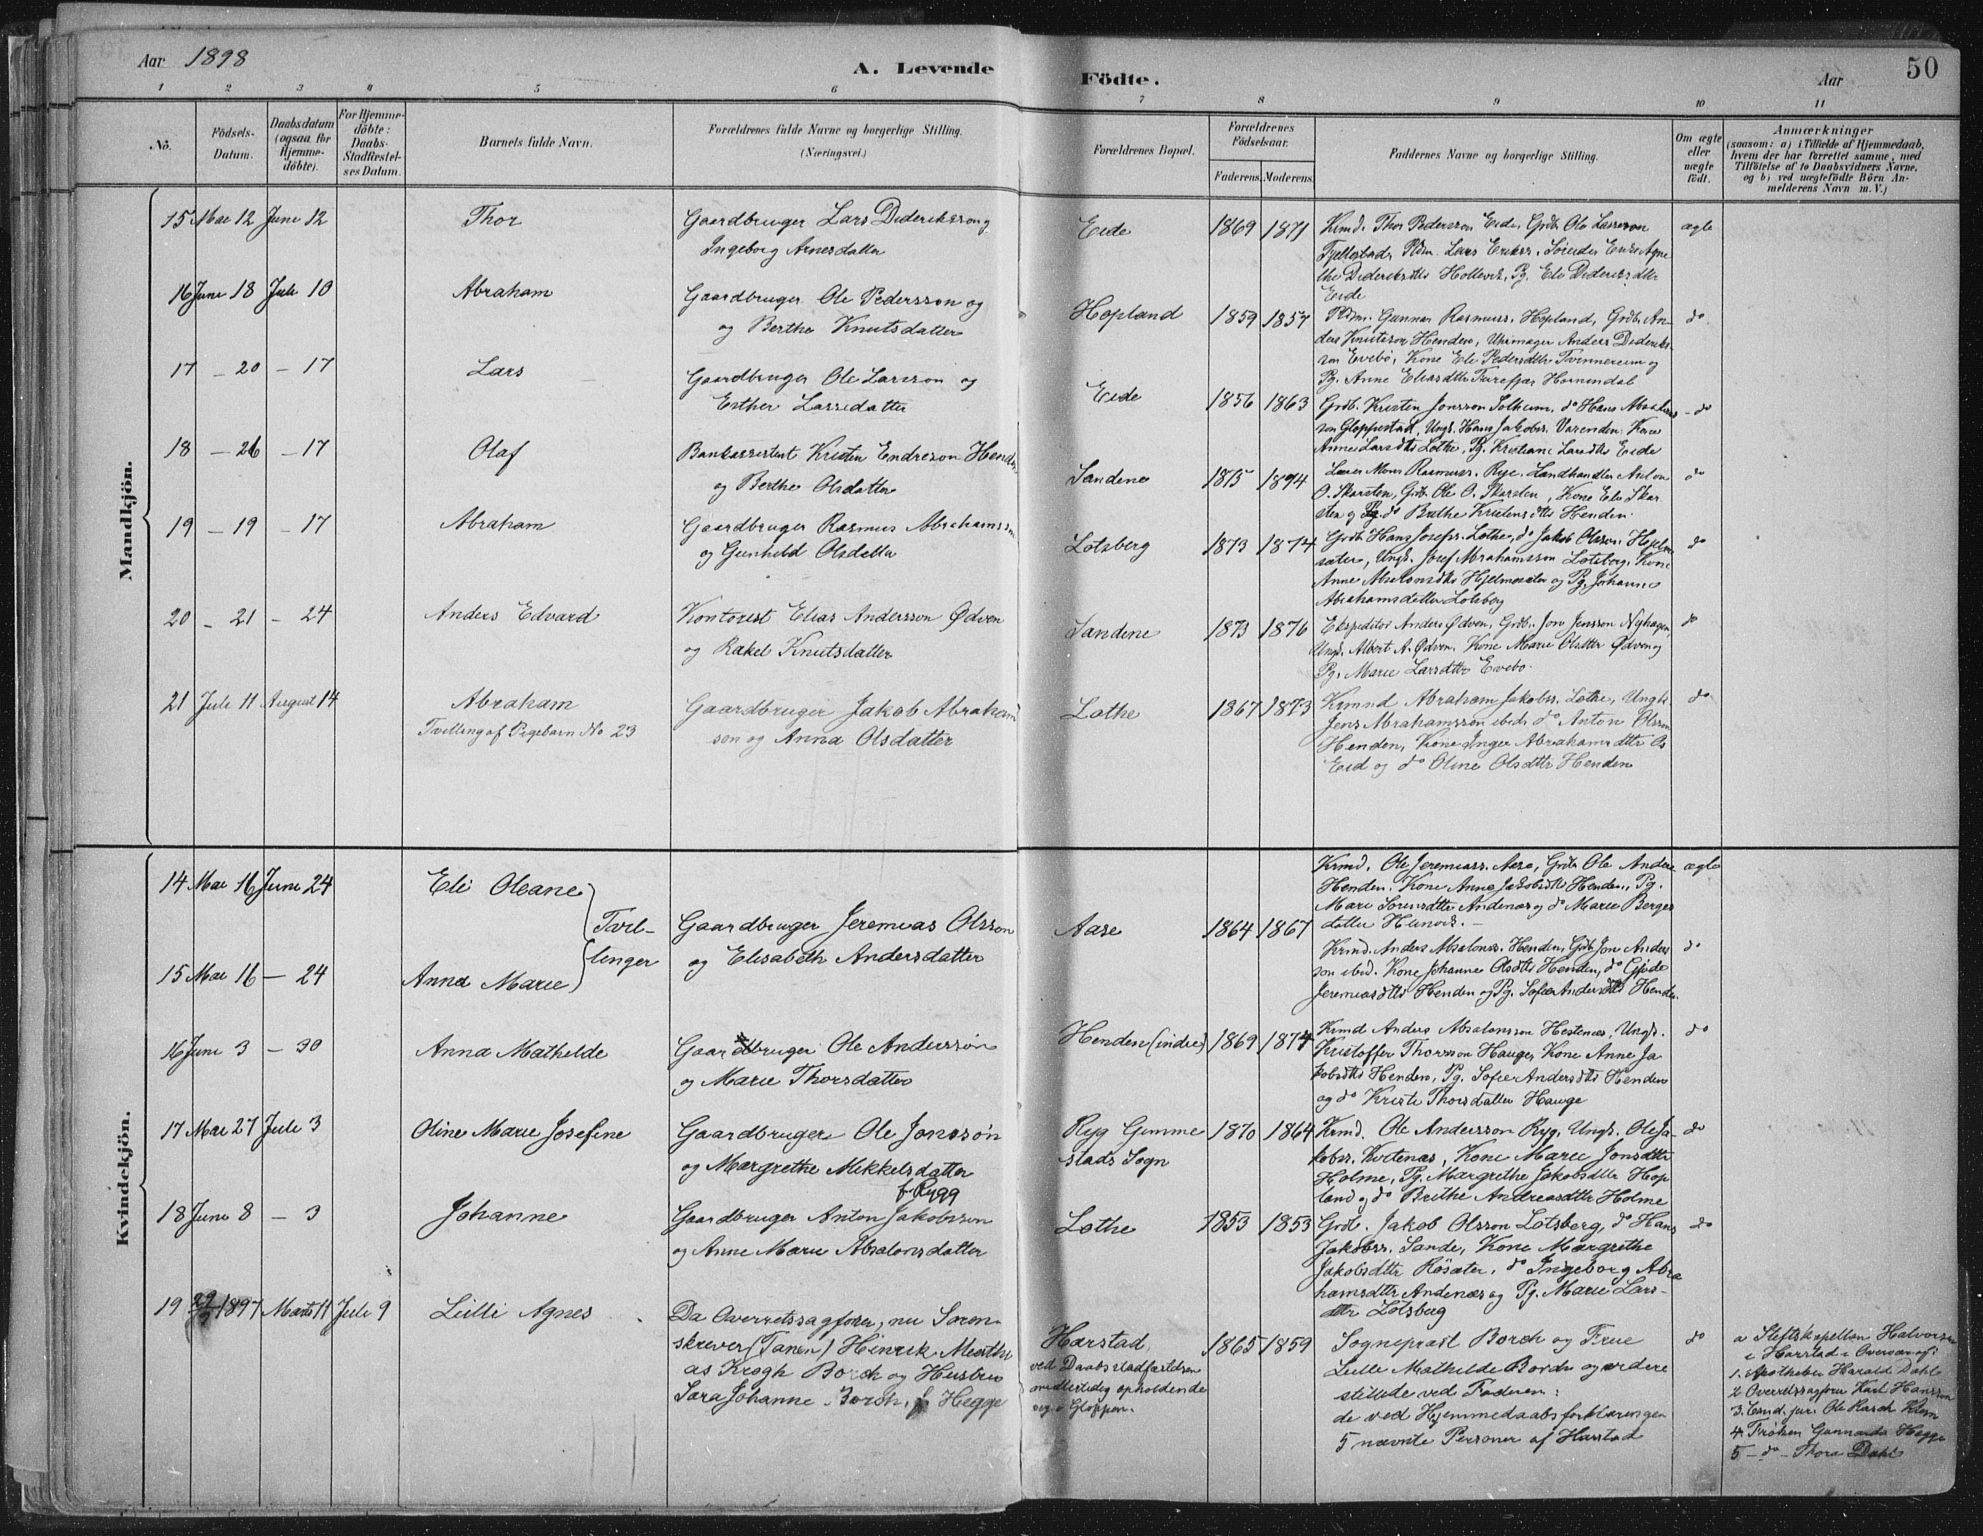 Aar 1898
A. Levende Födte.
Aar
50
1 2 3 4 5 6 7 8 9 10 11
No.
Födsels-Datum.
Daabsdatum (ogsaa for Hjemmedöbte).
For Hjemmedöbte: Daabs-Stadfæstelses Datum.
Barnets fulde Navn.
Forældrenes fulde Navne og borgerlige Stilling. (Næringsvei.)
Forældrenes Bopæl.
Forældrenes Födselsaar.
Faderens. Moderens.
Faddernes Navne og borgerlige Stilling.
Om ægte eller uægte födt.
Anmærkninger
(saasom: a) i Tilfælde af Hjemmedaab,
hvem der har forrettet samme, med
Tilföielse af to Daabsvidners Navne,
og b) ved uægtefödte Börn An-
melderens Navn m. V.)
Mandkjön.
15 Mai 12 Juni 12 Thor
Gaardbruger Lars Dideriksson og
Ingeborg Arnesdatter
Eide 1869 1871
Krmd. Thor Pedersson Eide, Grdb. Ole Larsson
Fjellestad, Pldm. Lars Erikss.
the Dideriksdtr Hollevik, Pg. Eli Dideriksdtr
Eide
ægte
16 Juni 18 Juli 10 Abraham
Gaardbruger Ole Pedersson og
og Berthe Knutsdatter
Hopland 1859 1857
Pldm. Gunnar Rasmuss. Hopland, Grdb. An-
ders Knutsson Henden, Uhrmager Anders Dideriks-
son Evebö, Kone Eli Pedersdtr Tvinnereim og
Pg. Anne Eliasdtr Hornindal
do
17 - 20 - 17 Lars
Gaardbruger Ole Larsson og
Esther Larsdatter
Eide 1856 1863
Grdb. Kristen Jonsson Solheim, do Hans
son Gloppestad, Ungk. Hans Jakobss. Varenden. Kone
Anne Larsdtr Lothe, Pg. Kristiane Larsdtr Eide
- do
18 - 26 - 17 Olaf
Bankassistent Kristen Endreson Henden
og Berthe Olsdatter
Sandene 1875 1874
Lærer Mons Rasmuss. Rye, Landhandler Anton
O. Skarsten, Grdb. Ole O. Skarsten, Kone Eli Skar
sten og Pg. do Berthe Kristensdtr Henden.
do
19 - 19 - 17 Abraham
Gaardbruger Rasmus Abrahamsson
og Gunhild Olsdatter
Lotsberg 1873 1874
Grdb. Hans Josefs. Lothe, do Jakob Olsson Hjelm
sæter, Ungk. Josef Abrahamsson Lotsberg, Kone
Anne Absalonsdtr Hjelmesæter og Pg. Johanne
Abrahamsdatter Lotsberg
do
20 - 21 - 24 Anders Edvard
Kontorist Elias Andersson Ødven
og Rakel Knutsdatter
Sandene 1873 1876
Ekspeditör Anders Ødven, Grdb. Jon Jensson Nyhagen,
Ungk. Albert A. Ødven, Kone Marie Olsdtr Ødven og
Pg. Marie Larsdtr Evebö.
do
21 Juli 11 August 14 Abraham
Tvilling af Pigebarn No 23
Gaardbruger Jakob Abraham
son og Anna Olsdatter
Lothe 1867 1873
Krmnd Abraham Jakobss. Lothe, Ungk.
Jens Abrahamsson ibid, do Anton Olsson
Henden, Kone Inger Abrahamsdtr Os
Eid og do Oline Olsdtr Henden
do
Kvindekjön.
14 Mai 16 Juni 24 Eli Oleane
Tvil-
linger
Gaardbruger Jeremias Olsson
og Elisabeth Andersdatter
Aase 1864 1867
Krmd. Ole Jeremiass. Aase, Grdb Ole Anders
Henden. Kone Anne Jakobsdtr Henden, Pg.
Mari Sorensdtr Andenæs og do Marie Berges
datter Hunvik.
ægte
15 Mai 16 - 24 Anna Marie
Krmd. Anders Absalonss. Henden, Grdb Jon Anders
son ibid. Kone Johanne Olsdtr Henden, do Gjöde
Jeremiasdtr Henden og Pg. Sofie Andersdtr Henden.
do
16 Juni 3 - 30 Anna Mathilde
Gaardbruger Ole Anderssön
og Marie Thorsdatter
Henden (indre) 1869 1874
Krmd Anders Absalonsson Hestenæs, Ungk.
Kristoffer Thorsson Hauge, Kone Anne Ja
kobsdtr Henden, Pg. Sofie Andersdtr Henden
og do Kristi Thorsdatter Hauge
do
17 Mai 27 Juli 3 Oline Marie Josefine
Gaardbruger Ole Jonssön
og Margrethe Mikkelsdatter
f. Rygg
Ryg Gimme
stads Sogn 1870 1864
Krmd. Ole Andersson Ryg, Ungk. Ole Ja-
kobss. Kvitenæs, Kone Marie Jonsdtr
Holme, Pg. Margrethe Jakobsdtr Hop
land og do Brithe Andreasdtr Holme
do
18 Juni 8 - 3 Johanne
Gaardbruger Anton Jakobsson
og Anne Marie Absalonsdatter
Lothe 1853 1853
Grdb. Jakob Olsson Lotsberg, do Hans
Jakobss. Sande, Kone Margrethe
Jakobsdtr Rösæter, do Ingeborg Abra
hamsdtr Andenæs og Pg. Marie Lars-
dtr Lotsberg
do
19 29/9 1897 Marts 11 Juli 9 Lilli Agnes
Da Overretssagförer, nu Soren-
skriver (Tanen) Hinrik Matthi
as Krogh Borch og Hustru
Sara Johanne Borch, f. Hegge
Harstad,
ved Daabsstadfæstelsen
midlertidig opholdende
sig i Gloppen.
1865 1859
Sognepræst Borch og Frue
Lilli Mathilde Borch og videre
stillede ved Faderen:
de ved Hjemmedaabsforklaringen
5 nævnte Personer af Harstad
do
a Stiftskapellan Halvorsen
i Harstad i Overvær af:
1. Apotheker Harald Dahl
2 Overretssagförer Karl Hansson
3. Cand. jur. Ole Hersch Klem
4. Fröken Gunnarda Hegge
5 - do - Thora Dahl